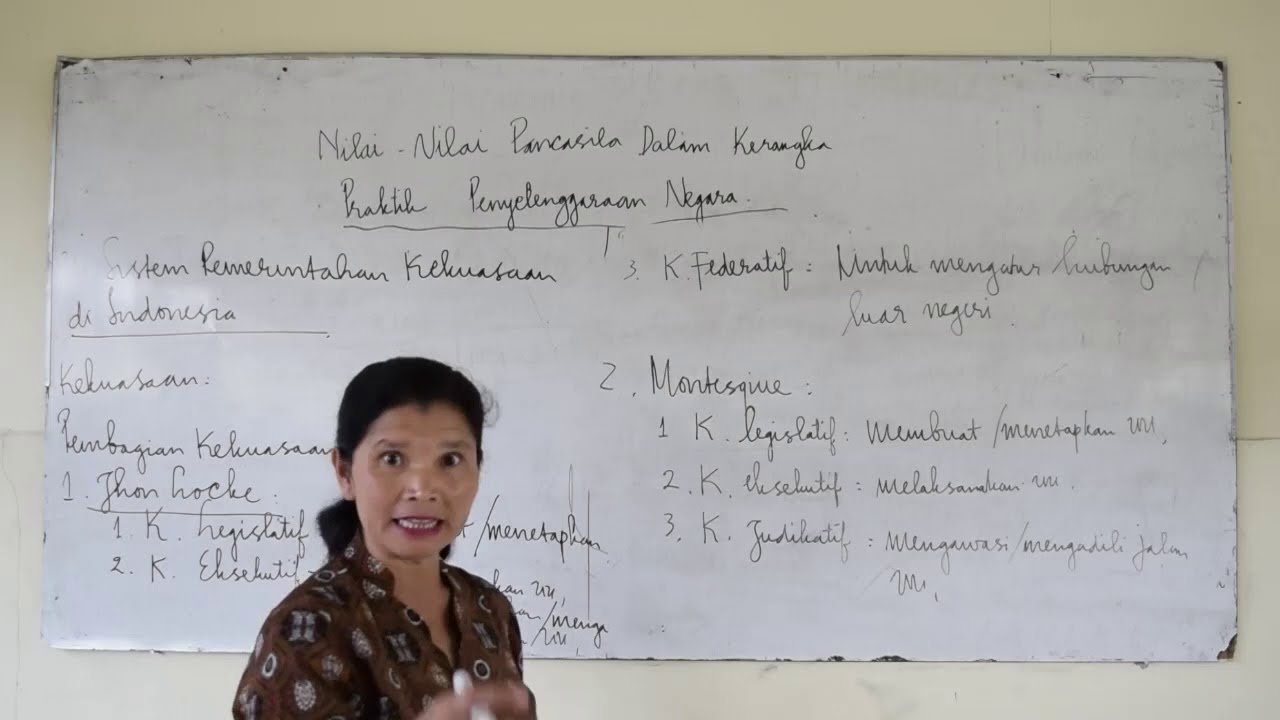 Nilai - Nilai Pancasila Dalam Kerangka
Praktik Penyelenggaraan Negara.
Sistem Pemerintahan Kekuasaan
di Indonesia
Kekuasaan:
Pembagian Kekuasaan
1. Jhon Locke:
1. K. Legislatif t/menetapkan
2. K. Eksekutif kan UU,
/menga
/UU,
3. K. Federatif : Untuk mengatur hubungan
luar negeri.
2. Montesqiue :
1 K. legislatif : Membuat/menetapkan UU,
2. K. eksekutif : melaksanakan UU.
3. K. Judikatif : Mengawasi/mengadili jalan
UU,